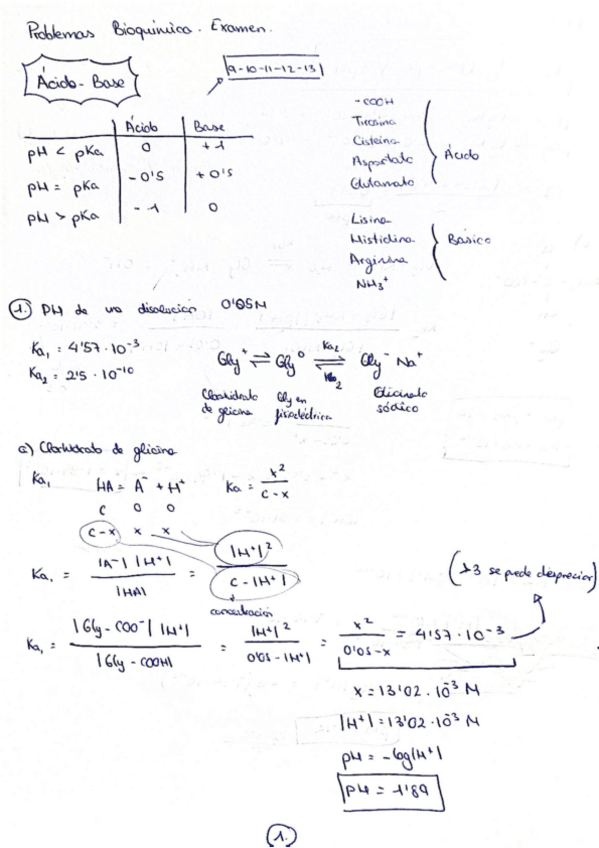 Problemas Bioquímica. Examen.
Ácido-Base
9-10-11-12-13
Ácido Base
pH < pKa 0 +1
pH = pKa -0'5 +0'5
pH > pKa -1 0
-COOH
Tirosina
Cisteína
Aspartato
Glutamato
Ácido
Lisina
Histidina
Arginina
NH3+
Básico
1. PH de una disolución 0'05M
Ka1 = 4'57·10^-3
Ka2 = 2'5·10^-10
Gly+ ⇌ Gly0 ⇌ Gly- Na+
Ka2
2
Clorhidrato de glicina
Gly en
Glicinato sódico
a) Clorhidrato de glicina
Ka1 HA = A- + H+ Ka = x^2 / c-x
c 0 0
c-x x x
Ka1 = |A-| |H+| / |HA| = |H+|^2 / c - |H+|
concentración
(>3 se puede despreciar)
Ka1 = |Gly-COO-| |H+| / |Gly-COOH| = |H+|^2 / 0'05-|H+| = x^2 / 0'05-x = 4'57·10^-3
x = 13'02·10^-3 M
|H+| = 13'02·10^-3 M
pH = -log|H+|
pH = 1'89
1.